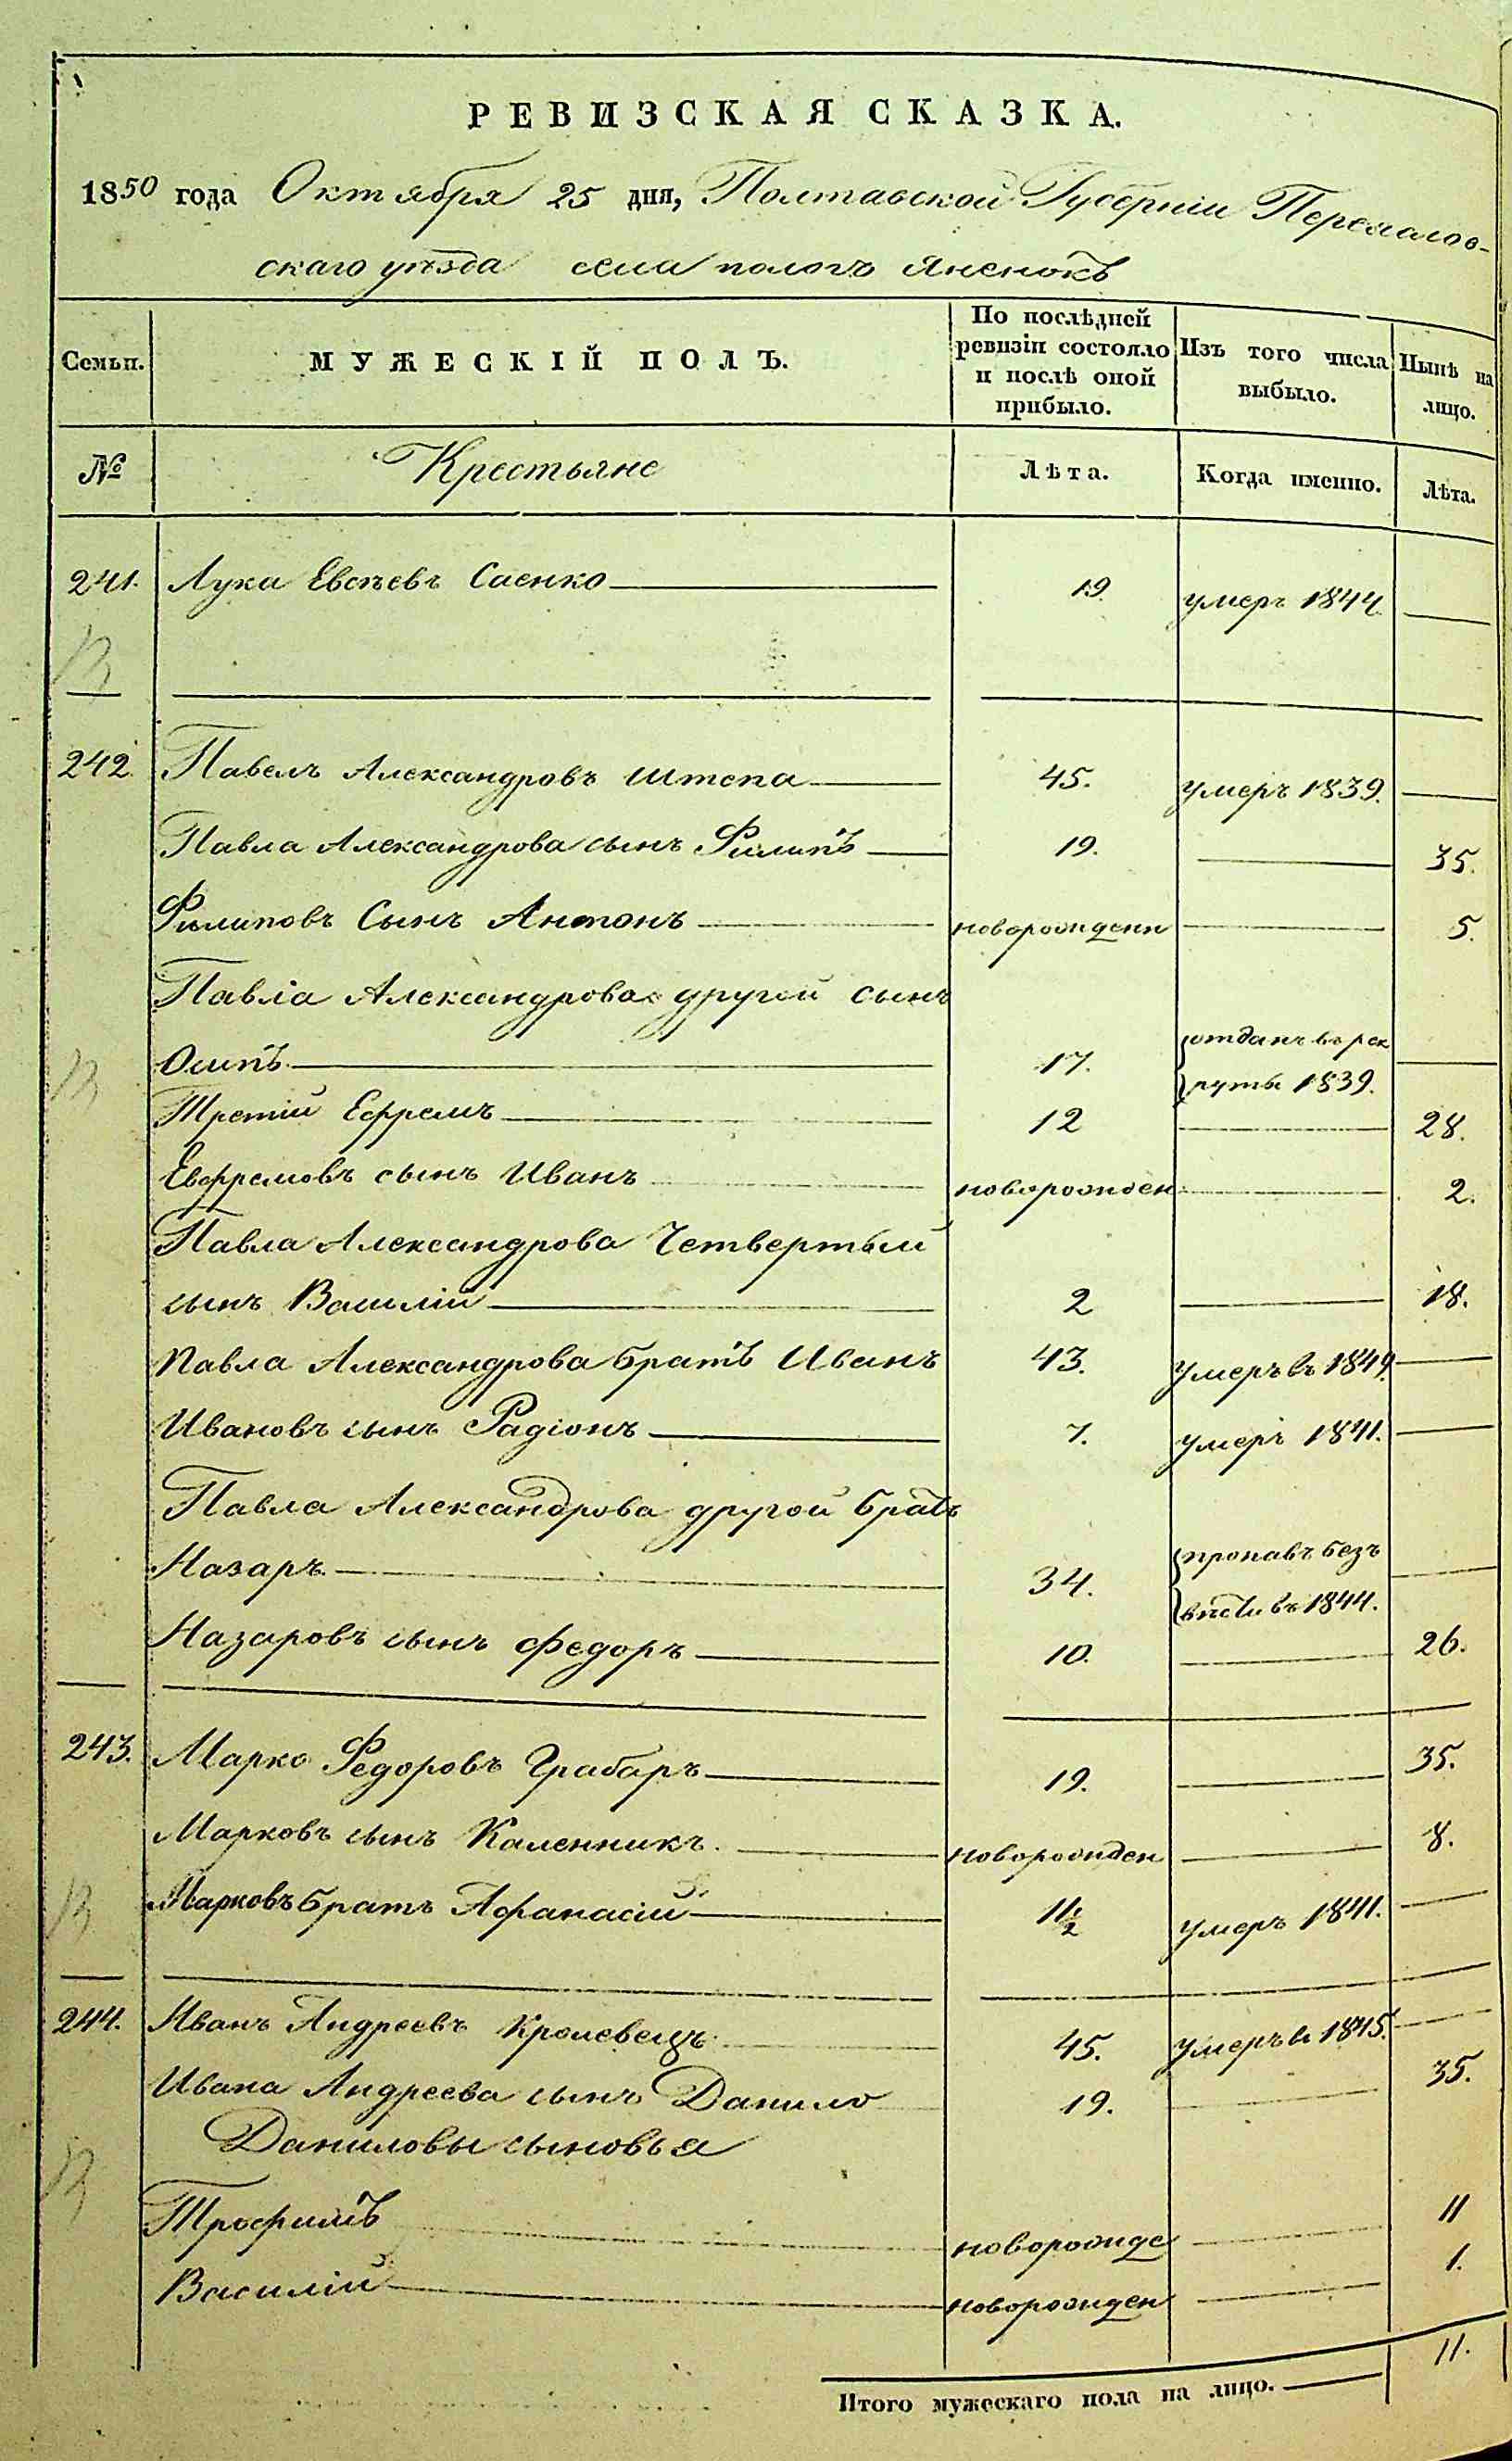 РЕВИЗСКАЯ СКАЗКА.
1850 года Октября 25 дня, Полтавской Губерніи Переяслов-
скаго уѣзда села пологъ Яненокъ
Семьи. МУЖЕСКІЙ ПОЛЪ. По послѣдней ревизіи состояло и послѣ оной прибыло. Изъ того числа выбыло. Нынѣ на лицо.
№ Крестьяне Лѣта. Когда именно. Лѣта.
241. Лука Евсѣевъ Саенко 19. умеръ 1844.
242. Павелъ Александровъ Штепа 45. умеръ 1839.
Павла Александрова сынъ Филипъ 19. 35.
Филиповъ Сынъ Антонъ новорожденн 5.
Павла Александрова другой сынъ
Осипъ 17. отданъ въ рек
руты 1839.
Третій Ефремъ 12 28.
Евфремовъ сынъ Иванъ новорожден 2.
Павла Александрова Четвертый
сынъ Василій 2 18.
Павла Александрова братъ Иванъ 43. умеръ въ 1849.
Ивановъ сынъ Радіонъ 7. умеръ 1841.
Павла Александрова другой братъ
Назаръ 34. пропавъ безъ
вѣсти въ 1844.
Назаровъ сынъ Федоръ 10. 26.
243. Марко Федоровъ Грабаръ 19. 35.
Марковъ сынъ Каленникъ. новорожден 8.
Марковъ братъ Афанасій 1 1/2 умеръ 1841.
244. Иванъ Андреевъ Кролевецъ 45. умеръ в 1845.
Ивана Андреева сынъ Данило 19. 35.
Даниловы сыновья
Трофимъ новорожде 11
Василій новорожден 1.
Итого мужескаго пола на лицо. 11.